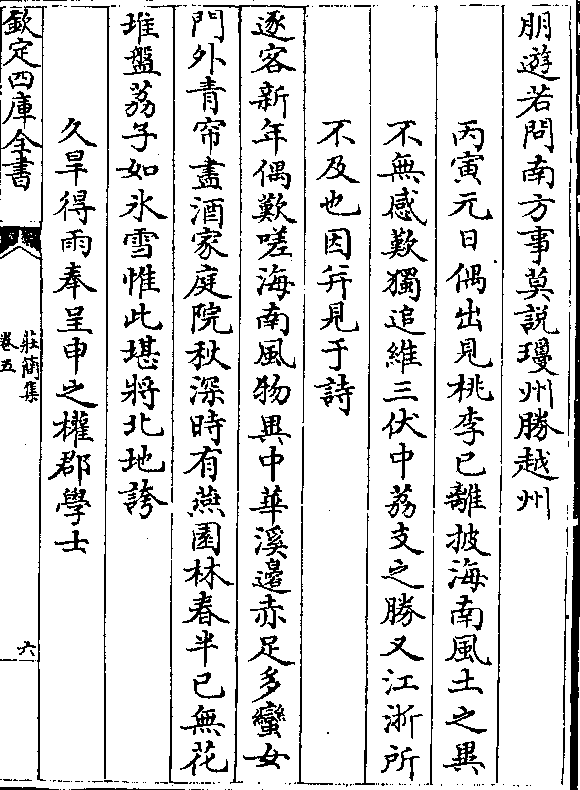 朋遊若問南方事莫說瓊州勝越州
丙寅元日偶出見桃李已離披海南風土之異
不無感歎獨追維三伏中荔支之勝又江浙所
不及也因并見于詩
逐客新年偶歎嗟海南風物異中華溪邊赤足多蠻女
門外青帘盡酒家庭院秋深時有燕園林春半已無花
堆盤荔子如氷雪惟此堪將北地誇
久旱得雨奉呈申之權郡學士
欽定四庫全書
莊簡集
卷五
六